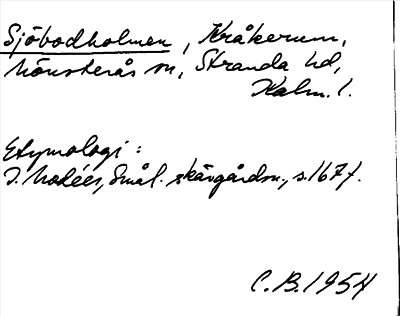 Sjöbodholmen, Kråkerum,
Mönsterås sn, Stranda hd,
Kalm. l.
Etymologi:
I. Modéer, Smål. skärgårdsn., s. 167 f.
C. B. 1954